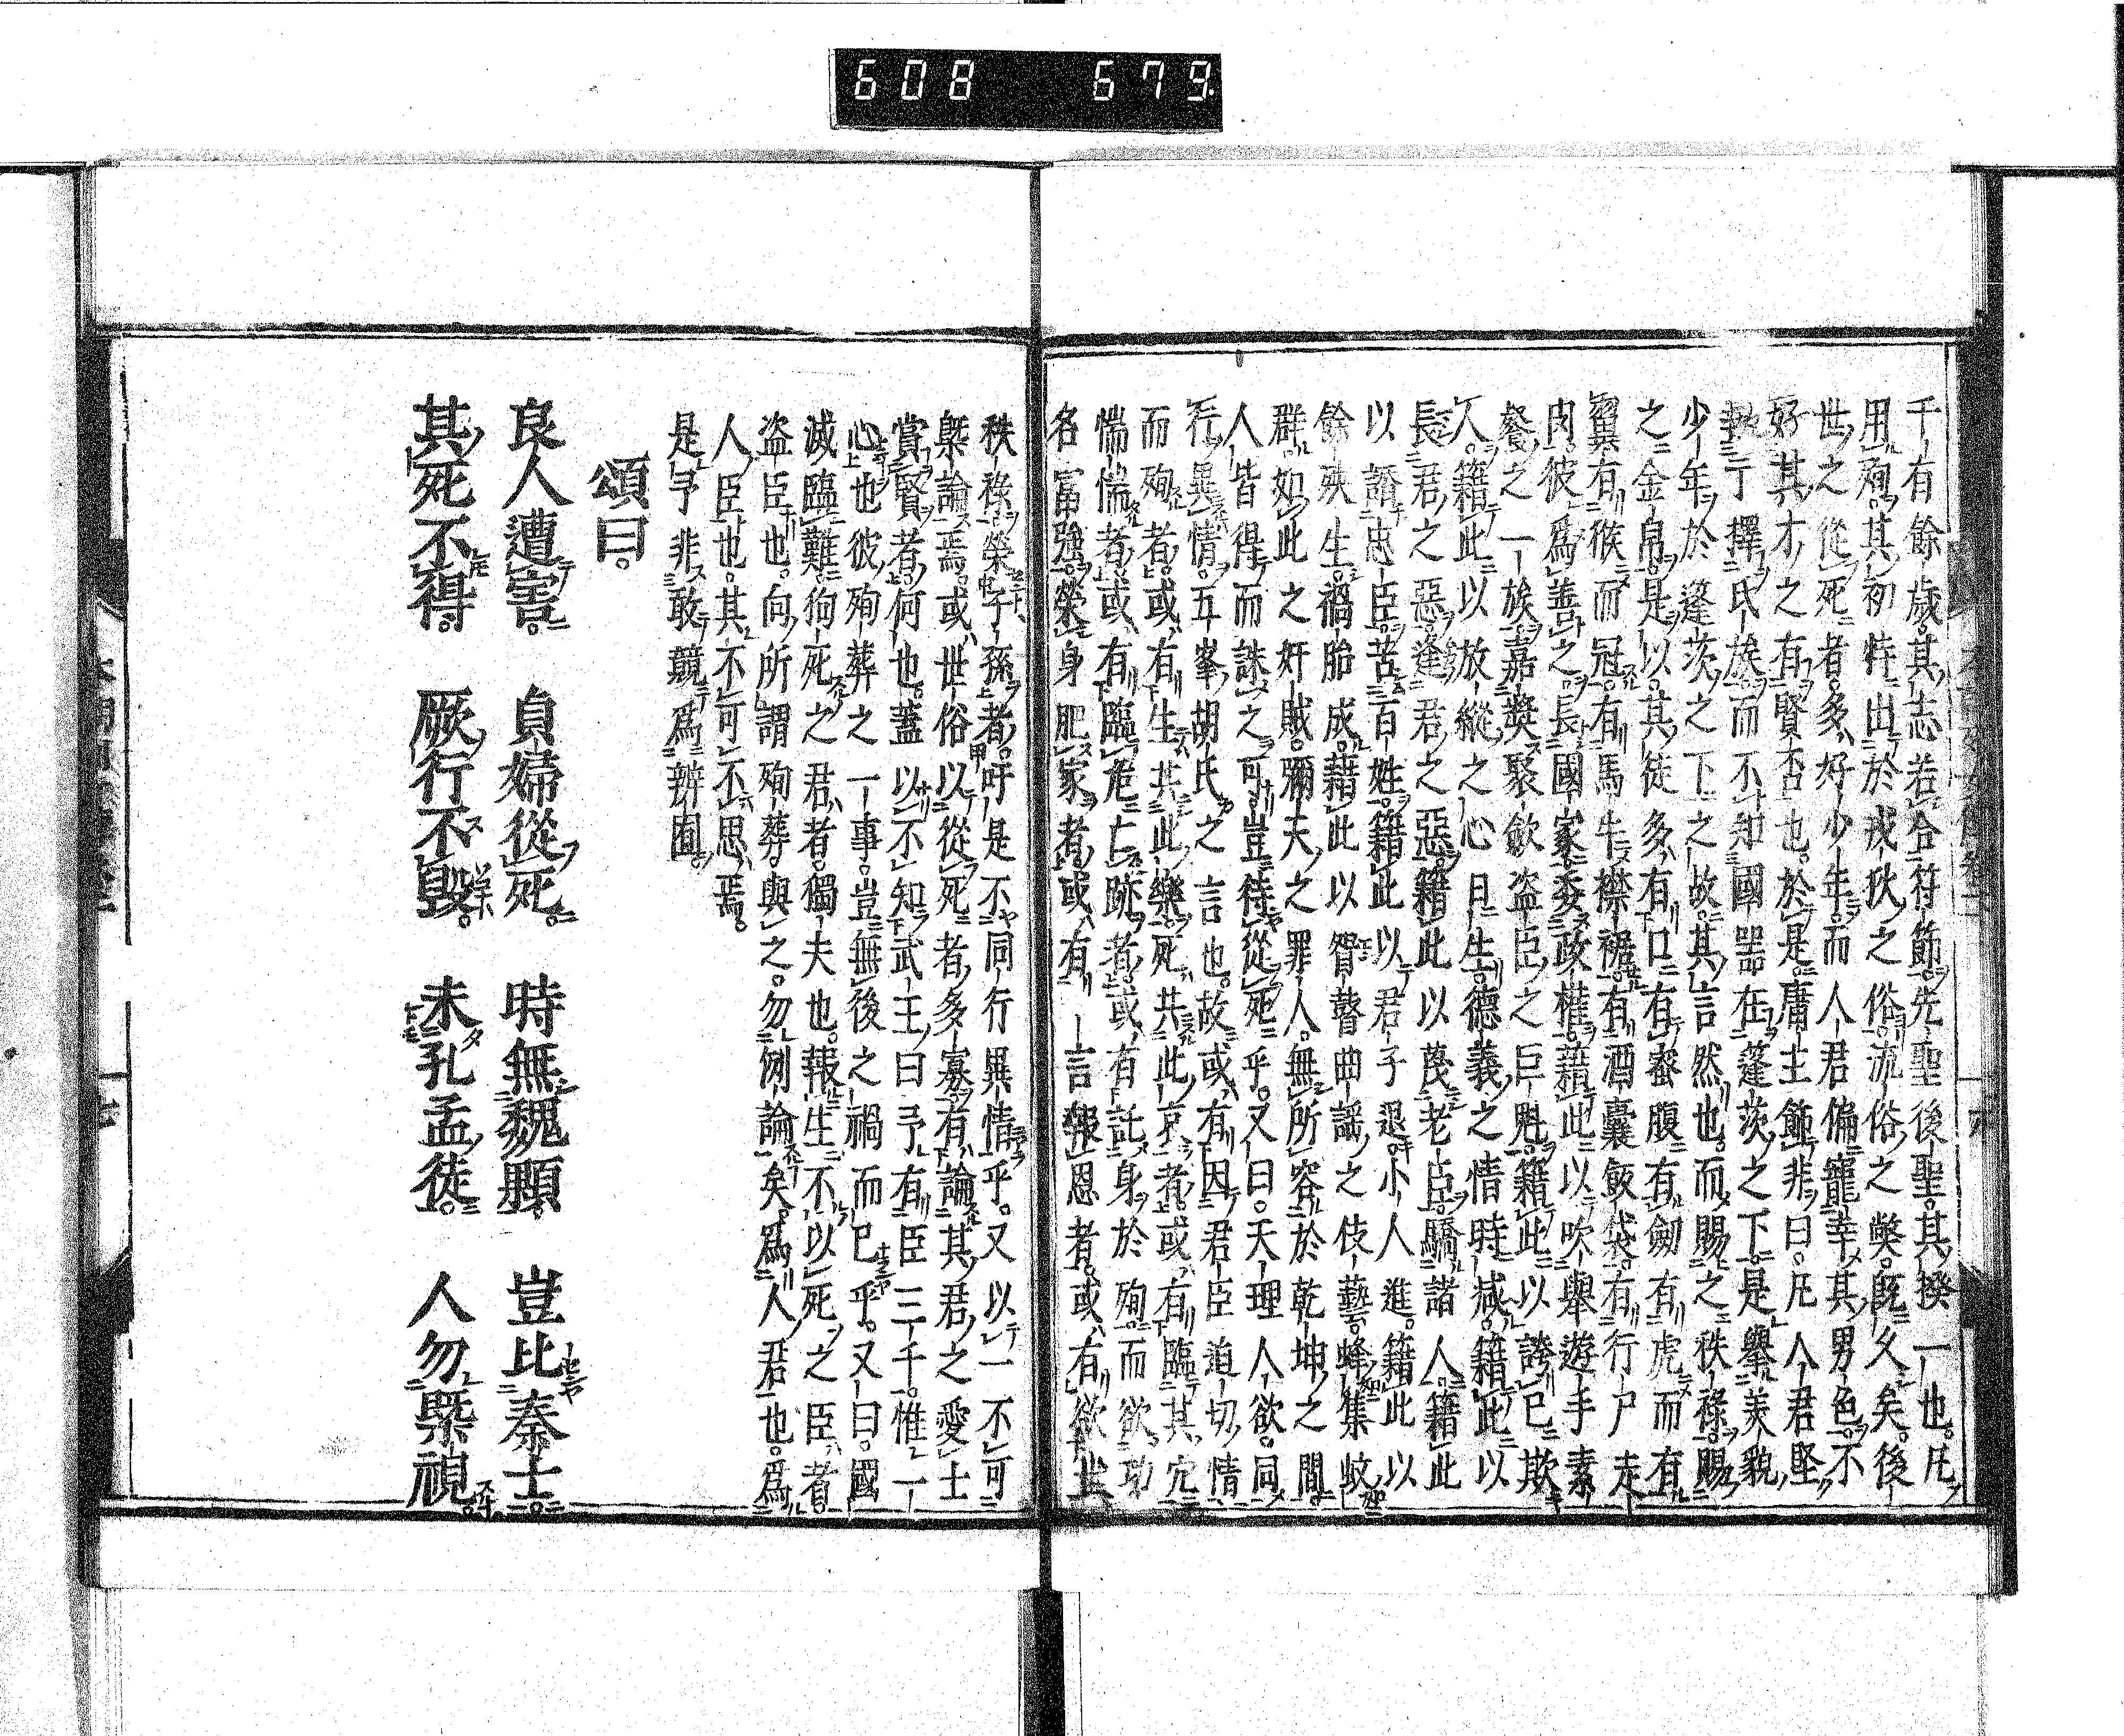 608 679
千有餘歲其志若合符節先聖後聖其揆一也凡
用殉其初特出於戎狄之俗流俗之弊既久矣後
世之從死者多好少年而人君偏寵幸其男色不
好其才之有賢否也於是庸主飾非曰凡人君堅
執丁擇氏族而不知國器在蓬茨之下是擧美貌
少年於蓬茨之下之故其言然也而賜之秩祿賜
之金帛是以其徒多有口有蜜腹有劒有虎而有
翼有猴而冠有馬牛襟裾有酒囊飯袋有行尸走
肉彼爲善之長國家委政權藉此以吹擧遊手素
餐之一族嘉奬聚斂盜臣之巨魁籍此以誇己欺
人籍此以放縱之心日生德義之情時減籍此以
長君之惡逢君之惡籍此以蔑老臣驕諸人籍此
以譖忠臣苦百姓籍此以君子退小人進籍此以
餘殃生禍胎成藉此以瞽曲謡之伎藝蜂集蚊
群如此之奸賊彌天之罪人無所容於乾坤之間
人皆得而誅之可豈待從死乎又曰天理人欲同
行異情五峯胡氏之言也故或有因君臣迫切情
而殉者或有生其此樂死共此哀者或有臨其穴
惴惴者或有臨危亡跡者或有託身於殉而欲功
名富強榮身肥家者或有一言報恩者或有欲世
秩祿榮子孫者吁是不同行異情乎又以一不可
槩論焉或世俗以從死者多寡有論其君之愛士
賞賢者何也蓋以不知武王曰予有臣三千惟一
心也彼殉葬之一事豈無後之禍而已乎又曰國
滅臨難徇死之君者獨夫也報生不以死之臣者
盜臣也向所謂殉葬與之勿例論矣爲人君也爲
人臣也其不可不思焉
是予非敢競爲辨囿
頌曰
良人遭害 貞婦從死 時無魏顆 豈比秦士
其死不得 厥行不毀 未孔孟徒 人勿槩視